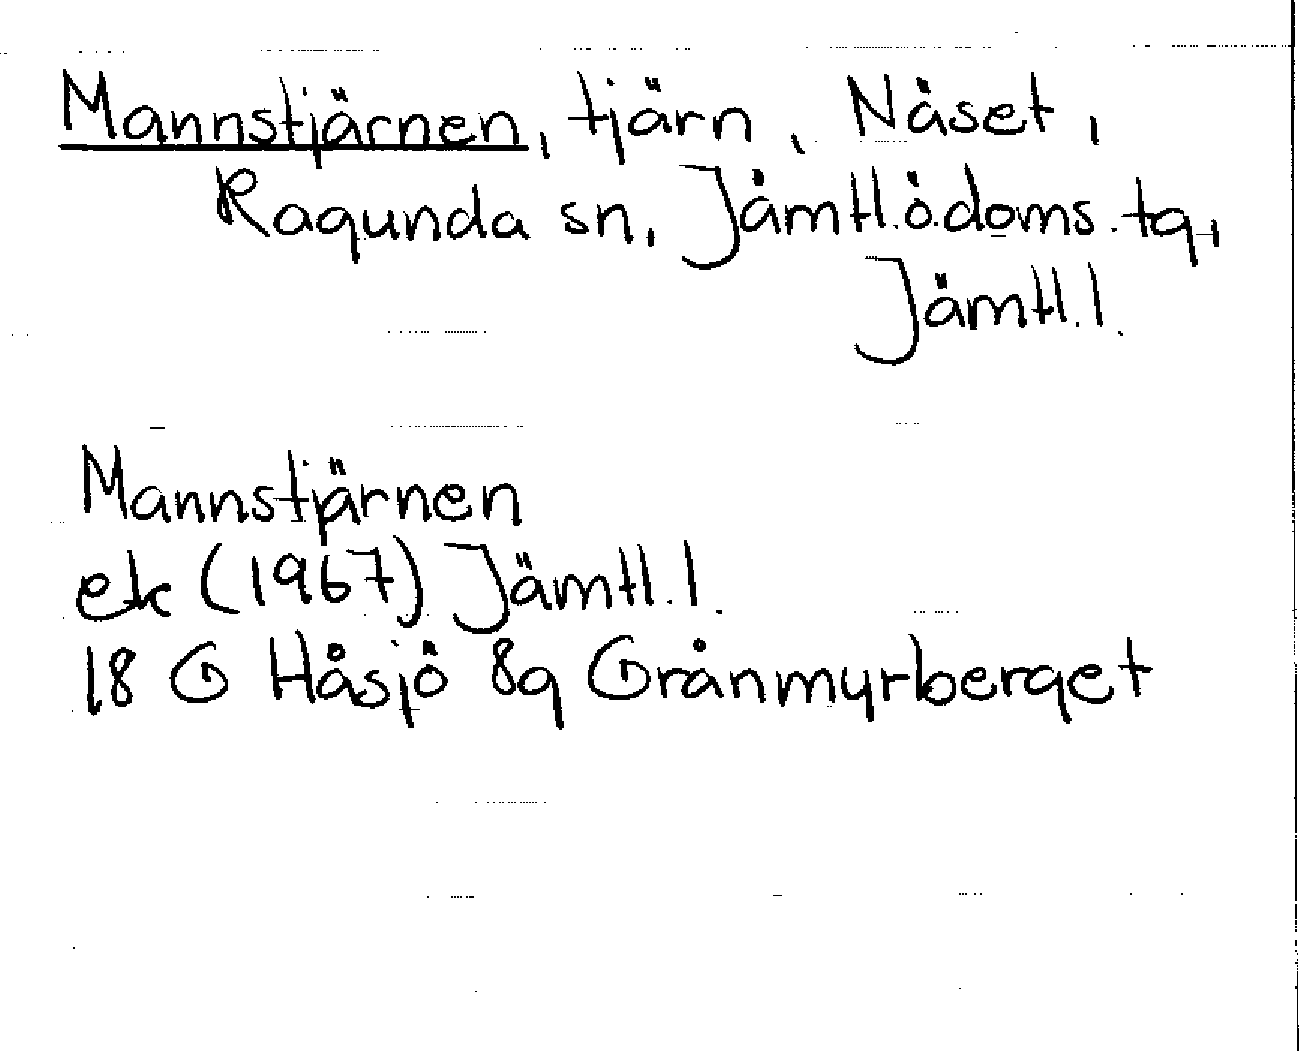 Mannstjärnen, tjärn, Näset,
Ragunda sn, Jämtl.ö.doms.tg,
Jämtl.l.
Mannstjärnen
ek (1967) Jämtl.l.
18 G Håsjö 8g Grånmyrberget